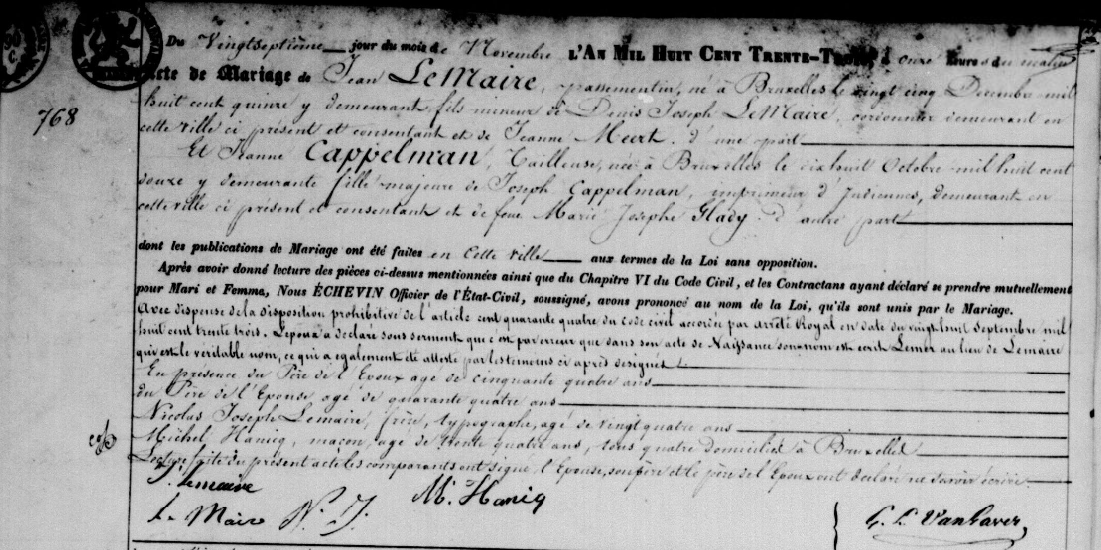 768
Du Vingtseptième jour du mois de Novembre L'AN MIL HUIT CENT TRENTE-TROIS, à onze heures du matin
Acte de Mariage de Jean LeMaire, passementier, né à Bruxelles le vingt cinq Decembre mil
huit cent quinze y demeurant, fils mineur de Denis Joseph LeMaire, cordonnier demeurant en
cette ville ci présent et consentant et de Jeanne Meert. d'une part
Et Jeanne Cappelman, Tailleuse, née à Bruxelles le dixhuit Octobre mil huit cent
douze y demeurante fille majeure de Joseph Cappelman, imprimeur d'Indiennes, demeurant en
cette ville ci présent et consentant et de feue Marie Josephe Glady. d'autre part
dont les publications de Mariage ont été faites en Cette Ville aux termes de la Loi sans opposition.
Après avoir donné lecture des pièces ci-dessus mentionnées ainsi que du Chapitre VI du Code Civil, et les Contractans ayant déclaré se prendre mutuellement
pour Mari et Femme, Nous ÉCHEVIN Officier de l'État-Civil, soussigné, avons prononcé au nom de la Loi, qu'ils sont unis par le Mariage.
Avec dispense de la disposition prohibitive de l'article cent quarante quatre du code civil accordée par arrêté Royal en date du vingt huit Septembre mil
huit cent trente trois. L'epoux a déclaré sous serment que c'est par erreur que dans son acte de Naissance son nom est ecrit Lemer au lieu de Lemaire
qui est le veritable nom, ce qui a egalement été attesté par les temoins ci après designés
En presence du Père de l'Epoux agé de cinquante quatre ans
du Père de l'Epouse agé de quarante quatre ans
Nicolas Joseph Lemaire, frère, typographe, agé de vingt quatre ans
Michel Hanicq, maçon, agé de trente quatre ans, tous quatre domiciliés à Bruxelles
Lecture faite du présent acte les comparants ont signé l'Epouse, son père et le père de l'Epoux ont déclaré ne savoir écrire
J. lemaire
Le Maire N. J.
M. Hanicq
G. L. VanGaver